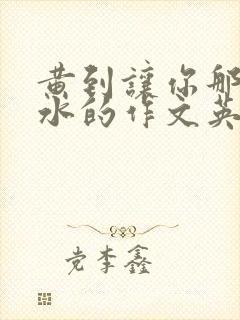 黄到讓你那
水的作文英
党李鑫